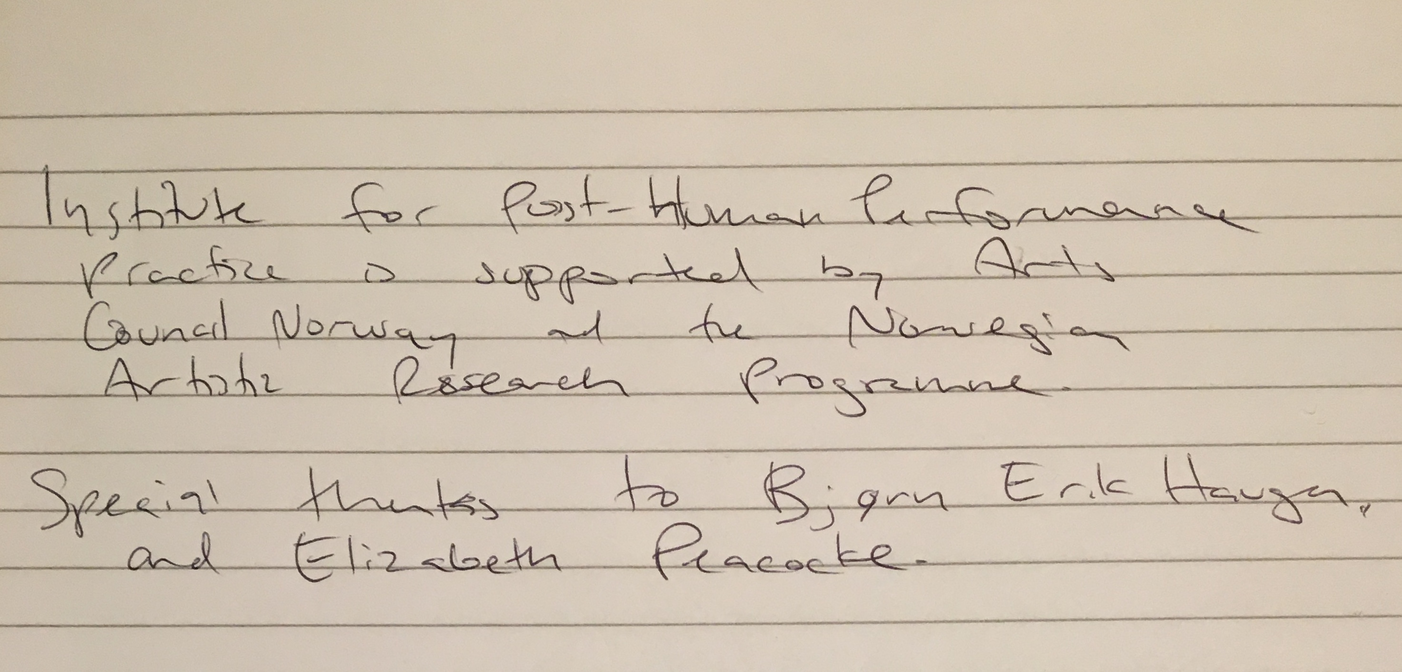 Institute for Post-Human Performance
Practice is supported by Arts
Council Norway and the Norwegian
Artistic Research Programme.
Special thanks to Bjørn Erik Haugen,
and Elizabeth Peacocke.